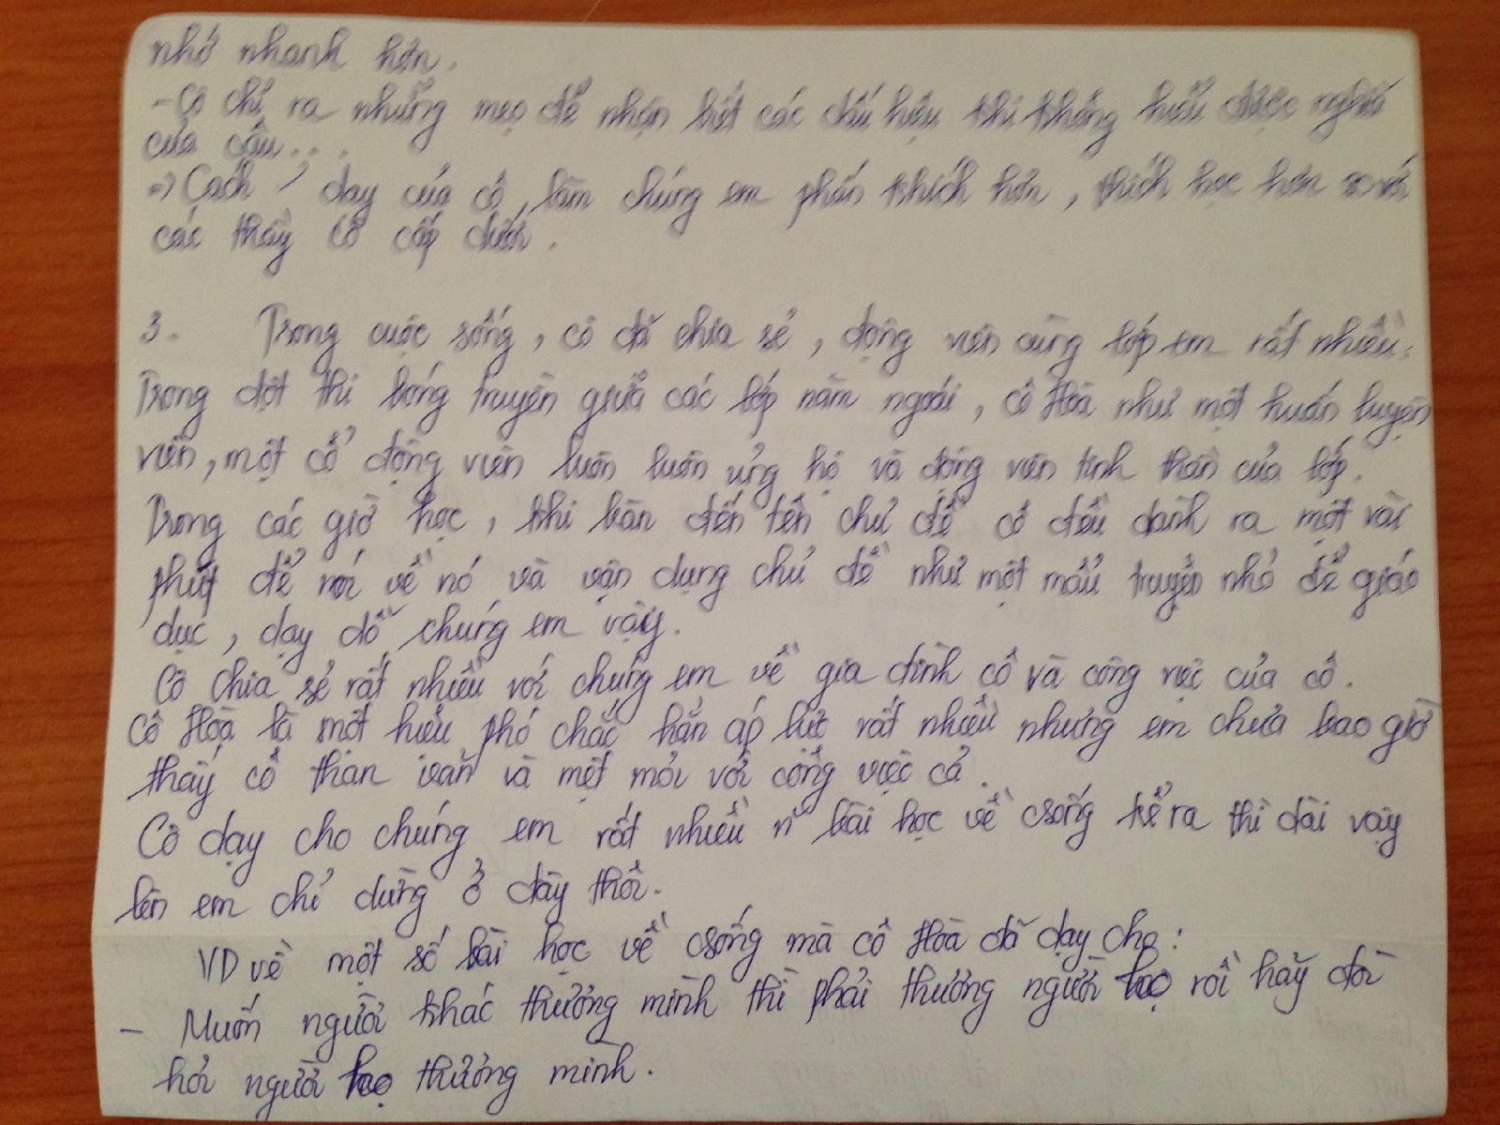 nhớ nhanh hơn.
- Cô chỉ ra những mẹo để nhận biết các dấu hiệu khi không hiểu được nghĩa
của câu...
=> Cách dạy của cô, làm chúng em phấn khích hơn, thích học hơn so với
các thầy cô cấp dưới.
3. Trong cuộc sống, cô đã chia sẻ, động viên cùng lớp em rất nhiều.
Trong đợt thi bóng truyền giữa các lớp năm ngoái, cô Hoà như một huấn luyện
viên, một cổ động viên luôn luôn ủng hộ và động viên tinh thần của lớp.
Trong các giờ học, khi bàn đến tên chủ đề cô đều dành ra một vài
phút để nói về nó và vận dụng chủ đề như một mẩu truyện nhỏ để giáo
dục, dạy dỗ chúng em vậy.
Cô chia sẻ rất nhiều với chúng em về gia đình cô và công việc của cô.
Cô Hoà là một hiệu phó chắc hẳn áp lực rất nhiều nhưng em chưa bao giờ
thấy cô than vãn và mệt mỏi với công việc cả.
Cô dạy cho chúng em rất nhiều n~ bài học về csống kể ra thì dài vậy
lên em chỉ dừng ở đây thôi.
VD về một số bài học về csống mà cô Hoà đã dạy cho:
- Muốn người khác thương mình thì phải thương người họ rồi hãy đòi
hỏi người họ thương mình.